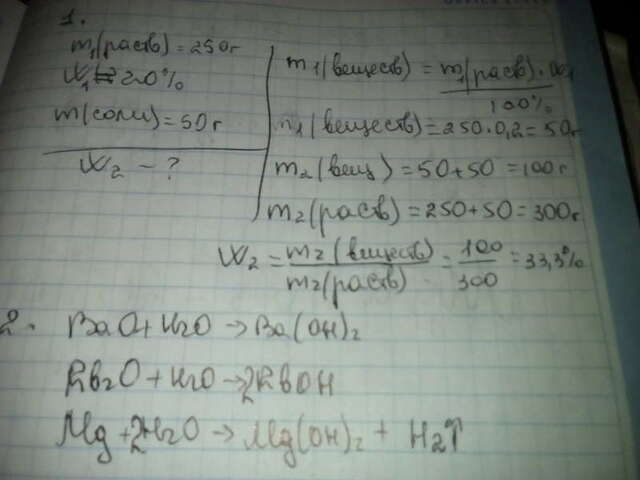 1.
m₁(раств) = 250г
W₁ = 20%
m(соли) = 50г
W₂ - ?
m₁(веществ) = m₁(раств) · ω₁
100%
m₁(веществ) = 250·0,2 = 50г
m₂(вещ) = 50+50 = 100г
m₂(раств) = 250+50 = 300г
W₂ = m₂(веществ) / m₂(раств) = 100 / 300 = 33,3%
2. BaO + H₂O → Ba(OH)₂
Rb₂O + H₂O → 2RbOH
Mg + 2H₂O → Mg(OH)₂ + H₂↑